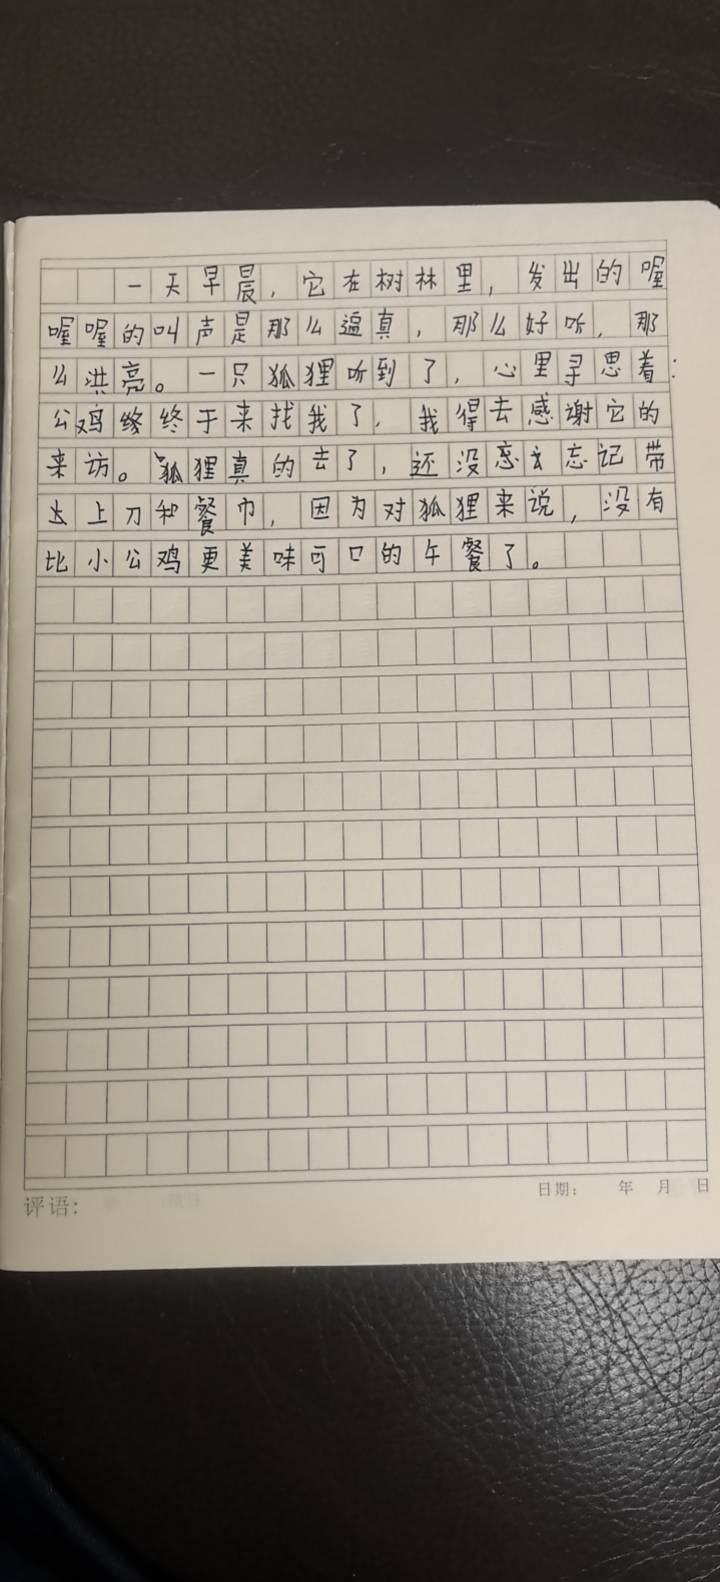 一天早晨，它在树林里，发出的喔
喔喔的叫声是那么逼真，那么好听，那
么洪亮。一只狐狸听到了，心里寻思着：
公鸡终于来找我了，我得去感谢它的
来访。狐狸真的去了，还没忘记带
上刀和餐巾，因为对狐狸来说，没有
比小公鸡更美味可口的午餐了。
评语：
日期： 年 月 日